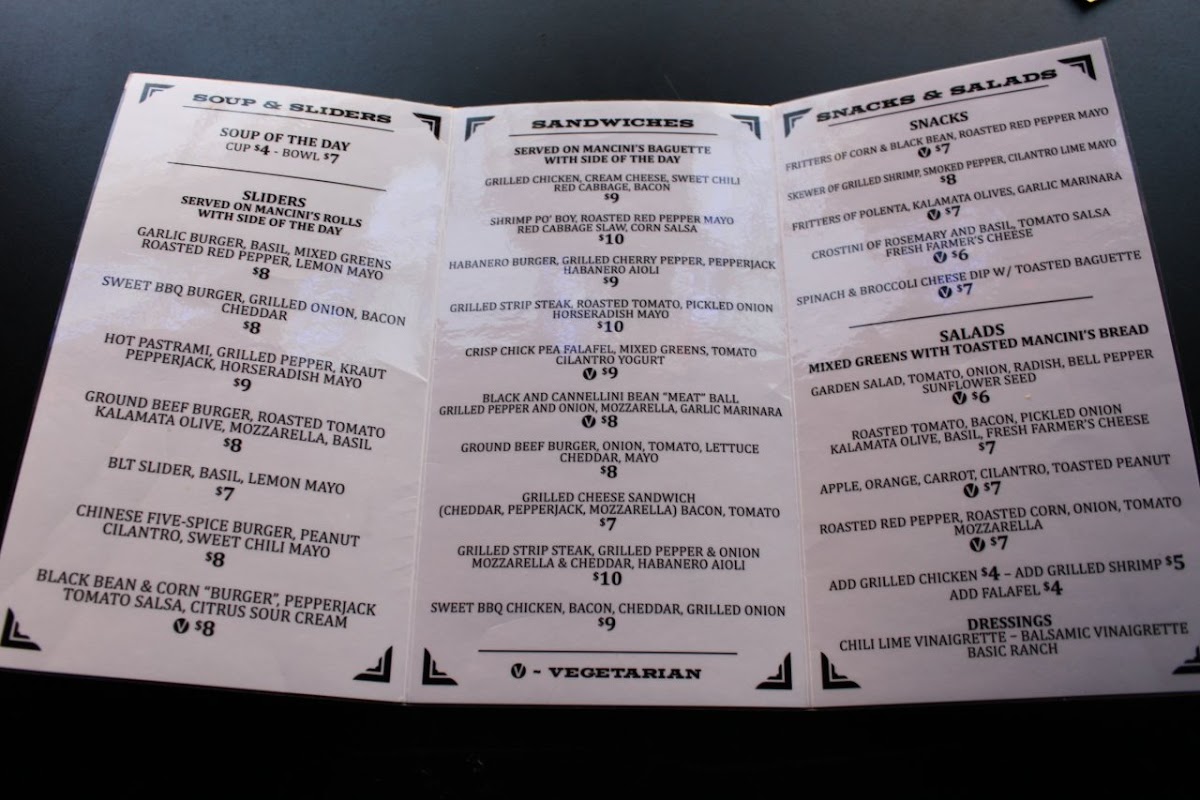 SOUP & SLIDERS
SOUP OF THE DAY
CUP $4 - BOWL $7
SLIDERS
SERVED ON MANCINI'S ROLLS
WITH SIDE OF THE DAY
GARLIC BURGER, BASIL, MIXED GREENS
ROASTED RED PEPPER, LEMON MAYO
$8
SWEET BBQ BURGER, GRILLED ONION, BACON
CHEDDAR
$8
HOT PASTRAMI, GRILLED PEPPER, KRAUT
PEPPERJACK, HORSERADISH MAYO
$9
GROUND BEEF BURGER, ROASTED TOMATO
KALAMATA OLIVE, MOZZARELLA, BASIL
$8
BLT SLIDER, BASIL, LEMON MAYO
$7
CHINESE FIVE-SPICE BURGER, PEANUT
CILANTRO, SWEET CHILI MAYO
$8
BLACK BEAN & CORN "BURGER", PEPPERJACK
TOMATO SALSA, CITRUS SOUR CREAM
V $8
SANDWICHES
SERVED ON MANCINI'S BAGUETTE
WITH SIDE OF THE DAY
GRILLED CHICKEN, CREAM CHEESE, SWEET CHILI
RED CABBAGE, BACON
$9
SHRIMP PO' BOY, ROASTED RED PEPPER MAYO
RED CABBAGE SLAW, CORN SALSA
$10
HABANERO BURGER, GRILLED CHERRY PEPPER, PEPPERJACK
HABANERO AIOLI
$9
GRILLED STRIP STEAK, ROASTED TOMATO, PICKLED ONION
HORSERADISH MAYO
$10
CRISP CHICK PEA FALAFEL, MIXED GREENS, TOMATO
CILANTRO YOGURT
V $9
BLACK AND CANNELLINI BEAN "MEAT" BALL
GRILLED PEPPER AND ONION, MOZZARELLA, GARLIC MARINARA
V $8
GROUND BEEF BURGER, ONION, TOMATO, LETTUCE
CHEDDAR, MAYO
$8
GRILLED CHEESE SANDWICH
(CHEDDAR, PEPPERJACK, MOZZARELLA) BACON, TOMATO
$7
GRILLED STRIP STEAK, GRILLED PEPPER & ONION
MOZZARELLA & CHEDDAR, HABANERO AIOLI
$10
SWEET BBQ CHICKEN, BACON, CHEDDAR, GRILLED ONION
$9
V - VEGETARIAN
SNACKS & SALADS
SNACKS
FRITTERS OF CORN & BLACK BEAN, ROASTED RED PEPPER MAYO
V $7
SKEWER OF GRILLED SHRIMP, SMOKED PEPPER, CILANTRO LIME MAYO
$8
FRITTERS OF POLENTA, KALAMATA OLIVES, GARLIC MARINARA
V $7
CROSTINI OF ROSEMARY AND BASIL, TOMATO SALSA
FRESH FARMER'S CHEESE
V $6
SPINACH & BROCCOLI CHEESE DIP W/ TOASTED BAGUETTE
V $7
SALADS
MIXED GREENS WITH TOASTED MANCINI'S BREAD
GARDEN SALAD, TOMATO, ONION, RADISH, BELL PEPPER
SUNFLOWER SEED
V $6
ROASTED TOMATO, BACON, PICKLED ONION
KALAMATA OLIVE, BASIL, FRESH FARMER'S CHEESE
$7
APPLE, ORANGE, CARROT, CILANTRO, TOASTED PEANUT
V $7
ROASTED RED PEPPER, ROASTED CORN, ONION, TOMATO
MOZZARELLA
V $7
ADD GRILLED CHICKEN $4 – ADD GRILLED SHRIMP $5
ADD FALAFEL $4
DRESSINGS
CHILI LIME VINAIGRETTE – BALSAMIC VINAIGRETTE
BASIC RANCH